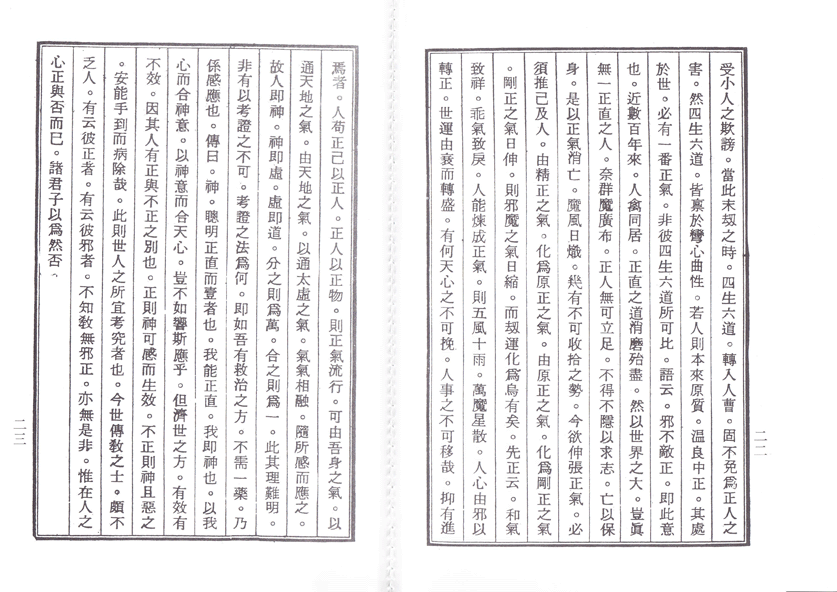 受小人之欺謗。當此末刼之時。四生六道。轉入人曹。固不免爲正人之
害。然四生六道。皆禀於彎心曲性。若人則本來原質。温良中正。其處
於世。必有一番正氣。非彼四生六道所可比。語云。邪不敵正。即此意
也。近數百年來。人禽同居。正直之道消磨殆盡。然以世界之大。豈眞
無一正直之人。奈群魔廣布。正人無可立足。不得不隱以求志。亡以保
身。是以正氣消亡。魔風日熾。幾有不可收拾之勢。今欲伸張正氣。必
須推己及人。由精正之氣。化爲原正之氣。由原正之氣。化爲剛正之氣
。剛正之氣日伸。則邪魔之氣日縮。而刼運化爲烏有矣。先正云。和氣
致祥。乖氣致戾。人能煉成正氣。則五風十雨。萬魔星散。人心由邪以
轉正。世運由衰而轉盛。有何天心之不可挽。人事之不可移哉。抑有進
二二
焉者。人苟正己以正人。正人以正物。則正氣流行。可由吾身之氣。以
通天地之氣。由天地之氣。以通太虛之氣。氣氣相融。隨所感而應之。
故人即神。神即虛。虛即道。分之則爲萬。合之則爲一。此其理難明。
非有以考證之不可。考證之法爲何。即如吾有救治之方。不需一藥。乃
係感應也。傳曰。神。聰明正直而壹者也。我能正直。我即神也。以我
心而合神意。以神意而合天心。豈不如響斯應乎。但濟世之方。有效有
不效。因其人有正與不正之別也。正則神可感而生效。不正則神且惡之
。安能手到而病除哉。此則世人之所宜考究者也。今世傳教之士。頗不
乏人。有云彼正者。有云彼邪者。不知教無邪正。亦無是非。惟在人之
心正與否而巳。諸君子以爲然否。
二三